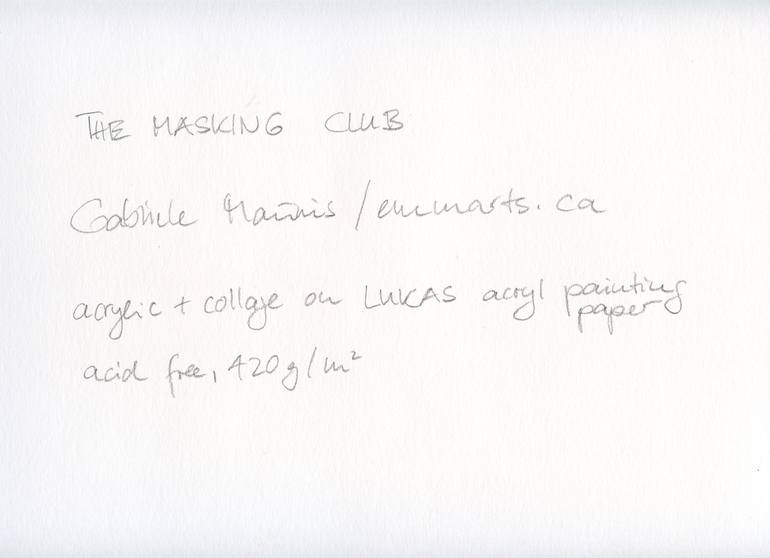 THE MASKING CLUB
Gabriele / emmarts.ca
acrylic + collage on LUKAS acryl painting paper
acid free, 420 g/m²